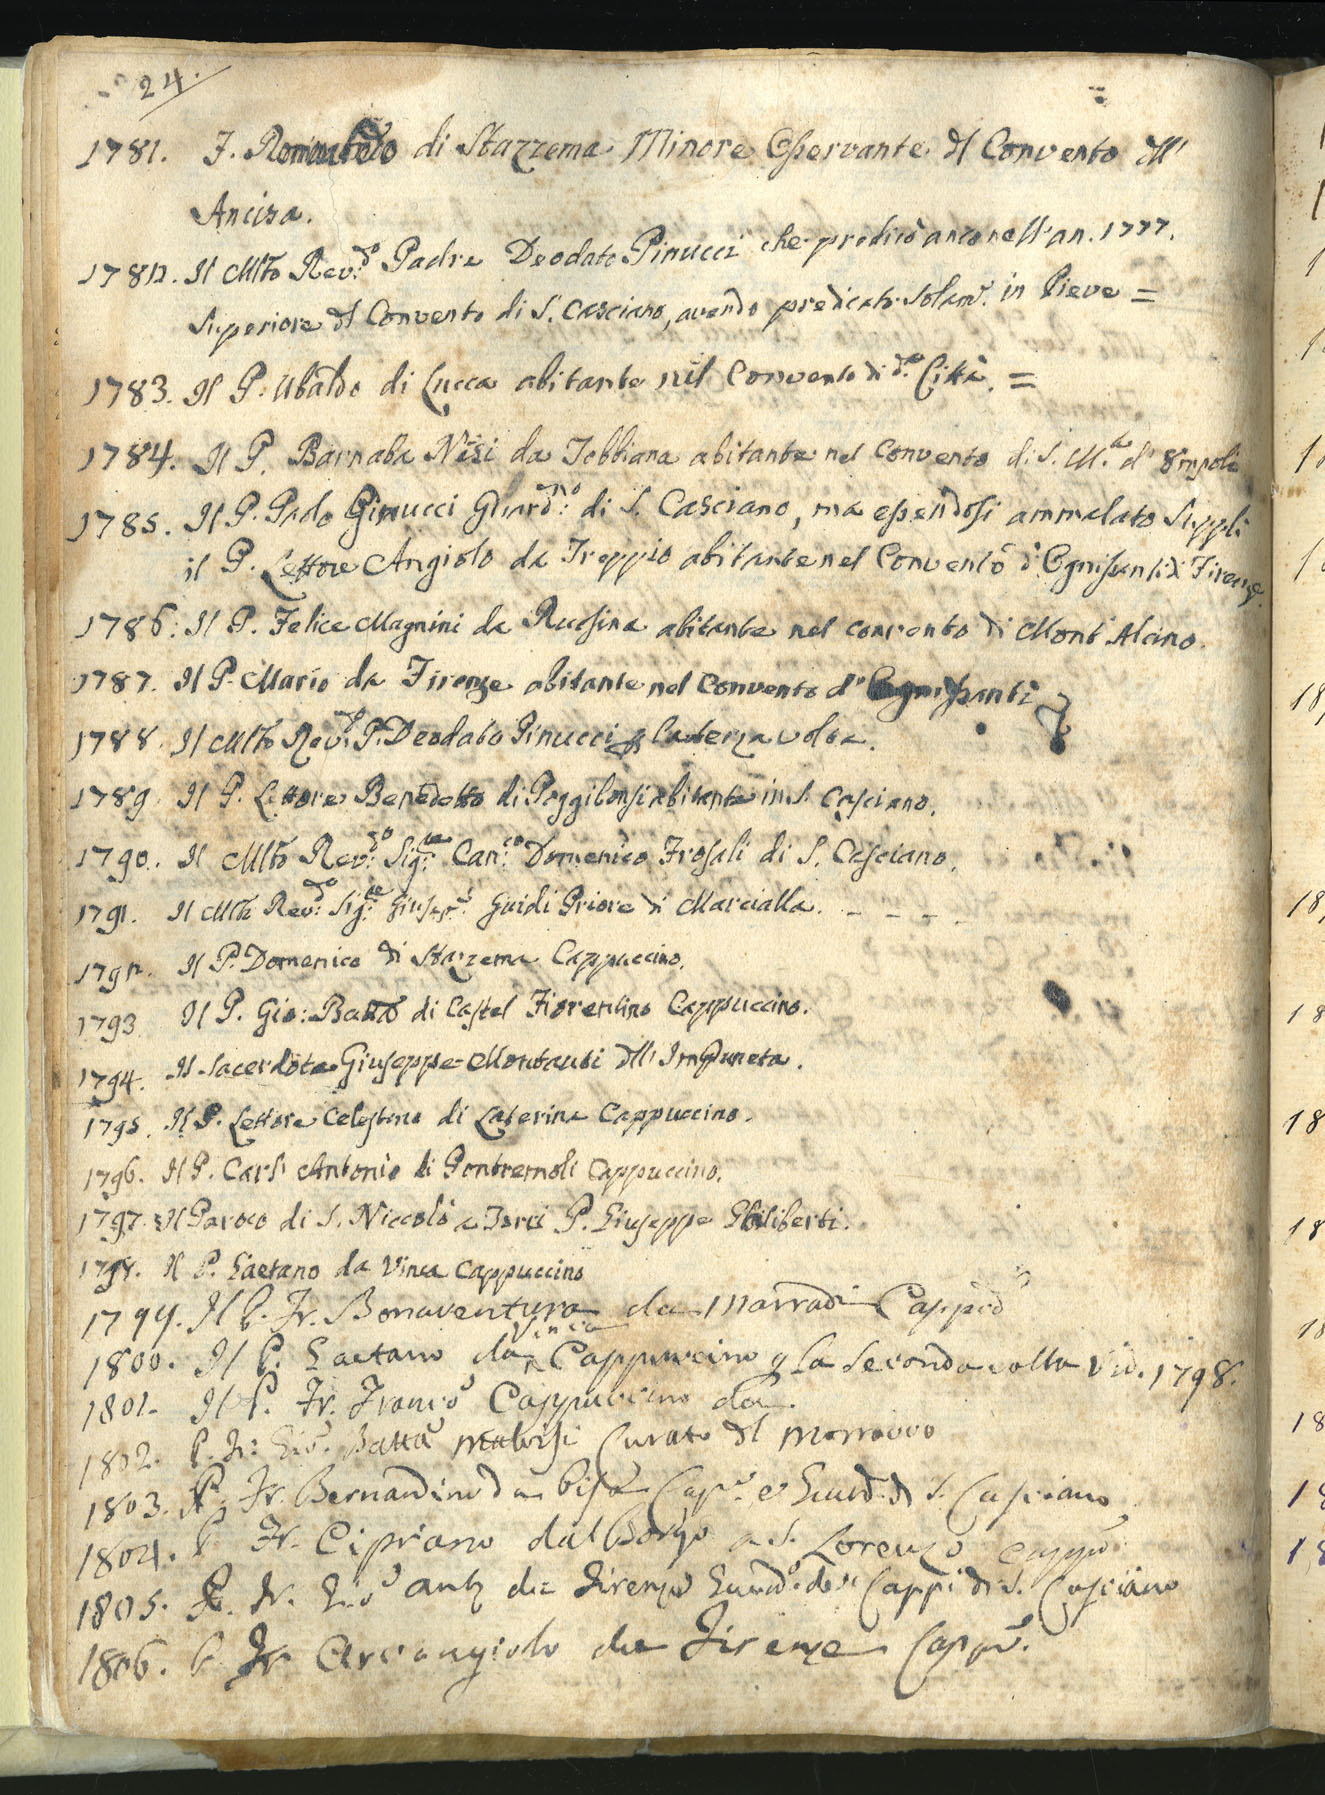 24.
1781. F. Romualdo di Stazzema Minore Osservante dl Convento dll'
Ancisa.
1782. Il Mlto Rev.do Padre Deodato Pinucci che predicò anco nell'an. 1777.
Superiore dl Convento di S. Casciano, avendo predicato solam.e in Pieve =
1783. Il P. Ubaldo di Lucca abitante nel Convento di d.a Città. =
1784. Il P. Barnaba Nesi da Jobbiana abitante nel Convento di S. M.a d' Empoli
1785. Il P. Pinucci Guard.no di S. Casciano, ma essendosi ammalato supplì
il P. Lettore Angiolo da Treppio abitante nel Convento d' Ognisanti di Firenze.
1786. Il P. Felice Magnini da Ruosina abitante nel convento di Mont' Alcino.
1787. Il P. Mario da Firenze abitante nel Convento d' Ognissanti
1788. Il Mlto Rev.do P. Deodato Pinucci p la terza volta.
1789. Il P. Lettore Benedetto di Poggibonsi abitante in S. Casciano.
1790. Il Mlto Rev.do Sig.re Can.co Domenico Frosali di S. Casciano.
1791. Il Mlto Rev.do Sig.re Giusep.e Guidi Priore di Marcialla. - - - -
1792. Il P. Domenico di Stazzema Cappuccino.
1793 Il P. Gio: Batta di Castel Fiorentino Cappuccino.
1794. Il Sacerdote Giuseppe Montauti dll' Impruneta.
1795. Il P. Lettore Celestino di Laterina Cappuccino.
1796. Il P. Carl' Antonio di Pontremoli Cappuccino.
1797. Il Paroco di S. Niccolò a P. Giuseppe Ghiliberti.
1798. Il P. Gaetano da Vinca Cappuccino
1799. Il P. Fr. Bonaventura da Marradi Capp.no
1800. Il P. Gaetano da Vinca Cappuccino p la seconda volta Vid. 1798.
1801. Il P. Fr. Franc.o Cappuccino da
1802. P. Fr: Gio. Batta Malvisi Curato dl Morrocco
1803. P. Fr. Bernardino da Pisa Cap.o e Guard. di S. Casciano
1804. P. Fr. Cipriano dal Borgo a S. Lorenzo Capp.o
1805. P. Fr. Gio. Ant. da Firenze Guard.o de' Capp.i di S. Casciano
1806. P. Fr Arcangiolo da Firenze Capp.o